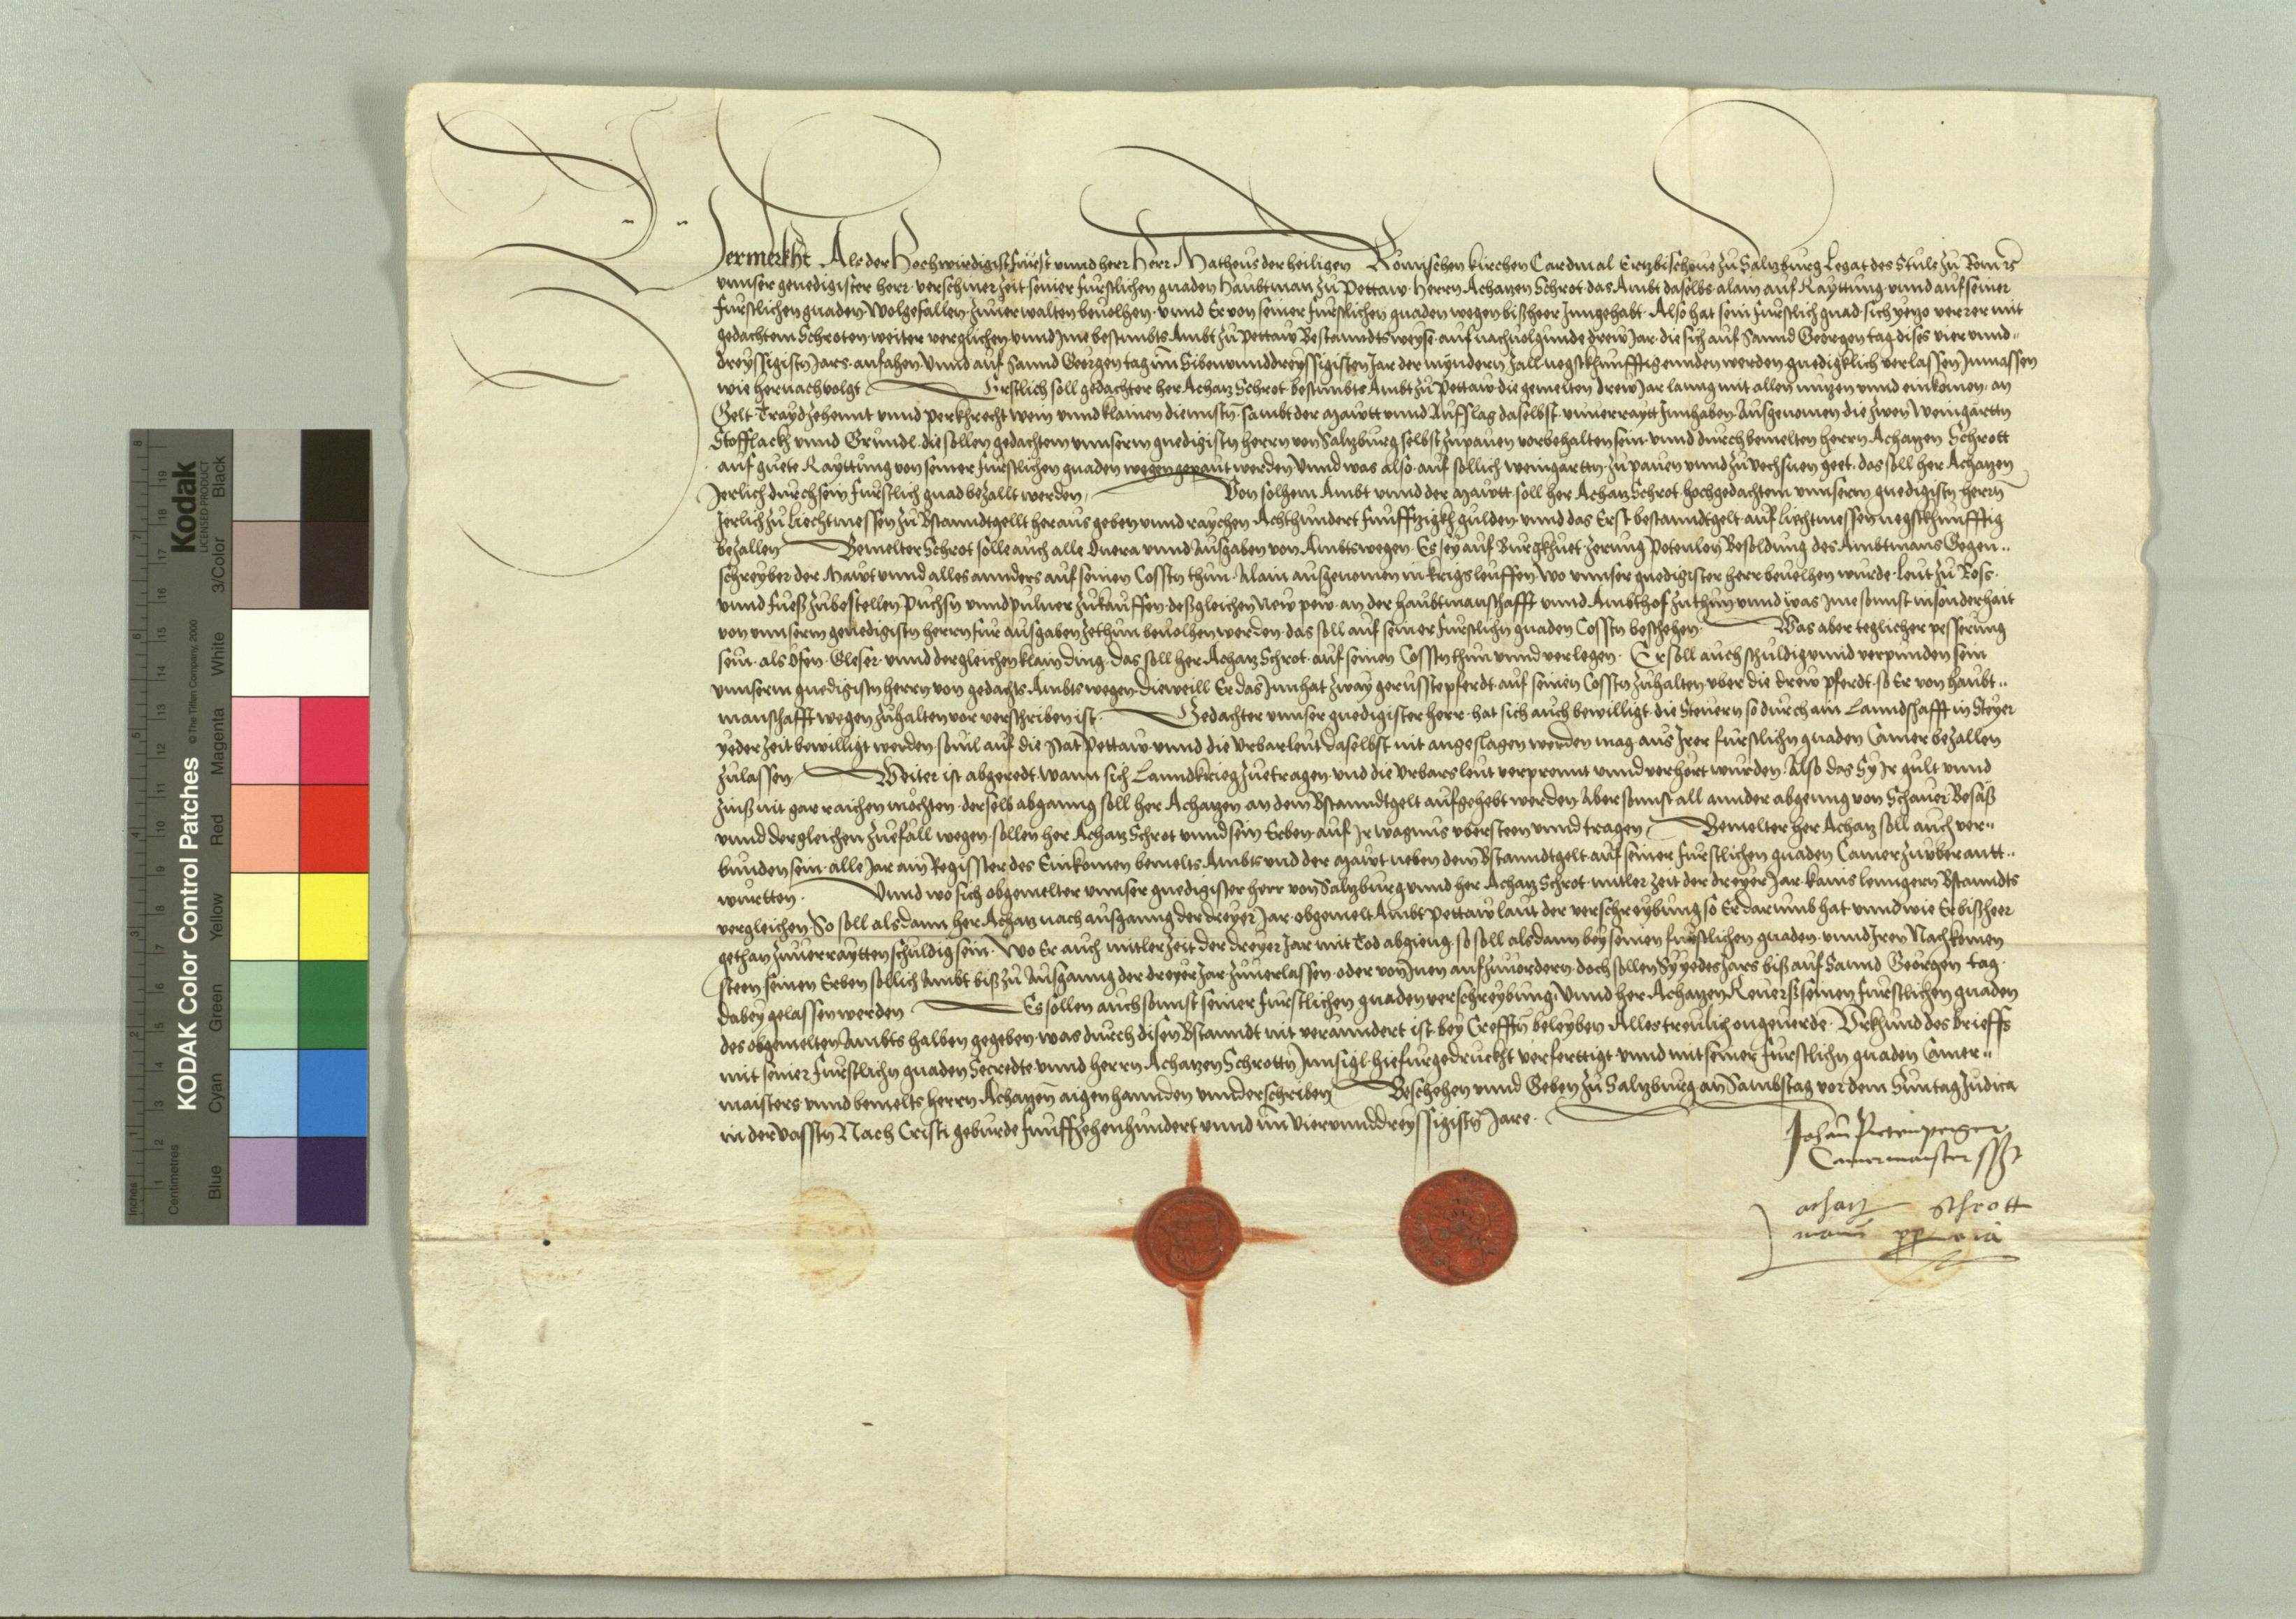 Vermerkht Als der Hochwirdigist Fürst vnnd herr Herr Matheus der heiligen Römischen kirchen Cardinal Ertzbischoue zu Saltzburg Legat des Stuls zu Rom rc
vnnser genedigister herr verschiner zeit seiner Furstlichen gnaden Haubtman zu Pettaw Herrn Achatzen Schrot das Ambt daselbs alain auf Rayttung vnnd auf seiner
Furstlichen gnaden Wolgefallen zuuerwalten beuolhen vnnd Er von seiner Furstlichen gnaden wegen bißheer Inngehabt Also hat sein Furstlich gnad sich yetzo verrer mit
gedachtem Schroten weiter verglichen vnnd Ime bestimbts Ambt zu Pettaw Bestanndtsweyse auf nachuolgunde drew Jar die sich auf Sannd Georgen tag dises vier vnnd
dreyssigistn Jars anfahen Vnnd auf Sannd Georgen tag im Siben vnnd dreyssigisten Jar der myndern zall negstkhunfftig ennden werden gnedigklich verlassen Innmassen
wie hernach volgt Erstlich soll gedachter her Achatz Schrot bestimbts Ambt zu Pettaw die gemelten drew Jar lanng mit allen nutzen vnnd einkomen an
Gelt Trayd zehennt vnnd Perkhrecht wein vnnd klainen diennstn sambt der Mawtt vnnd Aufslag daselbst vnuerraytt Innhaben Ausgenomen die zwen Weingarttn
Stofflackh vnnd Gründl die sollen gedachtem vnnserm gnedigistn herrn von Saltzburg selbst zupauen vorbehalten sein vnnd durch bemelten herrn Achatzen Schrott
auf guete Rayttung von seiner Furstlichen gnaden wegen gepaut werden Vnnd was also auf sollich weingartten zu pauen vnnd zu vechsnen geet das soll her Achatzen
Jerlich durch sein Furstlich gnad bezallt werden Von solhem Ambt vnnd der Mawtt soll her Achatz Schrot hochgedachtem vnnserm gnedigistn herrn
Jerlich zu Liechtmessen zu Bstanndtgellt heraus geben vnnd raychen Achthundert Funfftzigkh gulden vnnd das Erst bestanndtgelt auf Liechtmessen negstkhunfftig
bezallen Bemelter Schrot solle auch alle Onera vnnd Ausgaben von Ambts wegen Es sey auf Burgkhuet Zerung Potenlon Besoldung des Ambtmans Gegen
schreyber der Mawt vnnd alles annders auf seinen Cosstn thun Alain ausgenomen in kriegsleuffen wo vnnser gnedigister herr beuelhen wurde Leut zu Ross
vnnd Fuess zubestellen Puchsn vnnd puluer zukauffen deßgleichen New pew an der haubtmanschafft vnnd Ambthof zu thun vnnd was Ime sonnst in sonderhait
von vnnserm genedigistn herrn fur ausgaben zethun beuolhen werden das soll auf seiner Furstlichn gnaden Cosstn beschehen Was aber teglicher pesserung
sein als Öfen Gleser vnnd dergleichen klain ding das soll her Achatz Schrot auf seinen Cosstn thun vnnd verlegen Er soll auch schuldig vnnd verpunden sein
vnnserm gnedigistn herrn von gedachts Ambts wegen dieweill Er das Innhat zway gerusste pferdt auf seinen Cosstn zuhalten vber die drew pferdt so Er von haubt
manschafft wegen zuhalten vor verschriben ist Gedachter vnnser gnedigister herr hat sich auch bewilligt die Steuern so durch ain Lanndschafft in Steyer
yeder zeit bewilligt werden souil auf die Stat Pettaw vnnd die Vrbarleut daselbst mit angeslagen werden mag aus Irer Furstlichn gnaden Camer bezallen
zulassen Weiter ist abgeredt wann sich Lanndkrieg zuetragen vnd die Vrbarsleut verprennt vnnd verhört wurden Also das Sy Ir gult vnnd
zinß nit gar raichen möchten derselb abganng soll her Achatzen an dem Bstanndtgelt aufgehebt werden Aber sonnst all annder abgenng von Schauer Besäß
vnnd dergleichen zuefäll wegen sollen her Achatz Schrot vnnd sein Erben auf Ir wagnus vbersteen vnnd tragen Bemelter her Achatz soll auch ver
bunden sein alle Jar ain Register des Einkomen bemelts Ambts vnd der Mawt neben dem Bstanndtgelt auf seiner Furstlichen gnaden Camer zuuberantt
wurtten Vnnd wo sich obgemelter vnnser gnedigister herr von Saltzburg vnnd her Achatz Schrot mitler zeit der dreyer Jar kains lenngern Bstanndts
vergleichen So soll alsdann her Achatz nach ausganng der dreyer Jar obgemelt Ambt Pettaw laut der verschreybung so Er darumb hat vnnd wie Er bißheer
gethan zuuerraytten schuldig sein Wo Er auch mitler zeit der dreyer Jar mit Tod abgieng so soll alsdann bey seinen Furstlichen gnaden vnnd Iren Nachkomen
steen seinen Erben sollich Ambt biß zu Ausganng der dreyer Jar zuuerlassen oder von Inen aufzuuordern doch sollen Sy yedes Jars biß auf Sannd Georgen tag
dabey gelassen werden Es sollen auch sonnst seiner Furstlichen gnaden verschreybung Vnnd her Achatzen Reuerß seinen Furstlichen gnaden
des obgemelten Ambts halben gegeben was durch disen Bstanndt nit verannndert ist bey Crefftn beleyben Alles treulich ongeuerde Vrkhund des brieffs
mit seiner Furstlichn gnaden Secrete vnnd herrn Achatzen Schrottn Innsigl hiefurgedruckht verferttigt vnnd mit seiner Furstlichn gnaden Camer
maisters vnnd bemelts herrn Achatzen aigen hannden vnnderschriben Beschehen vnnd Geben zu Saltzburg an Sambstag vor dem Suntag Judica
in der Vasstn Nach Cristi geburde Funffzehenhundert vnnd im Viervnnddreyssigistn Jare
Johan
Camermaister
achatz schrott
manu ppria
KODAK Color Control Patches
Kodak
LICENSED PRODUCT
© The Tiffen Company, 2000
Inches
Centimetres
Blue Cyan Green Yellow Red Magenta White 3/Color Black